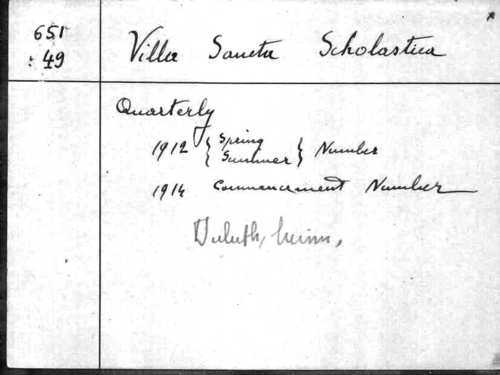 651
: 49
Villa Sancta Scholastica
Quarterly
1912 { Spring
Summer } Number
1914 Commencement Number
Duluth, Minn.